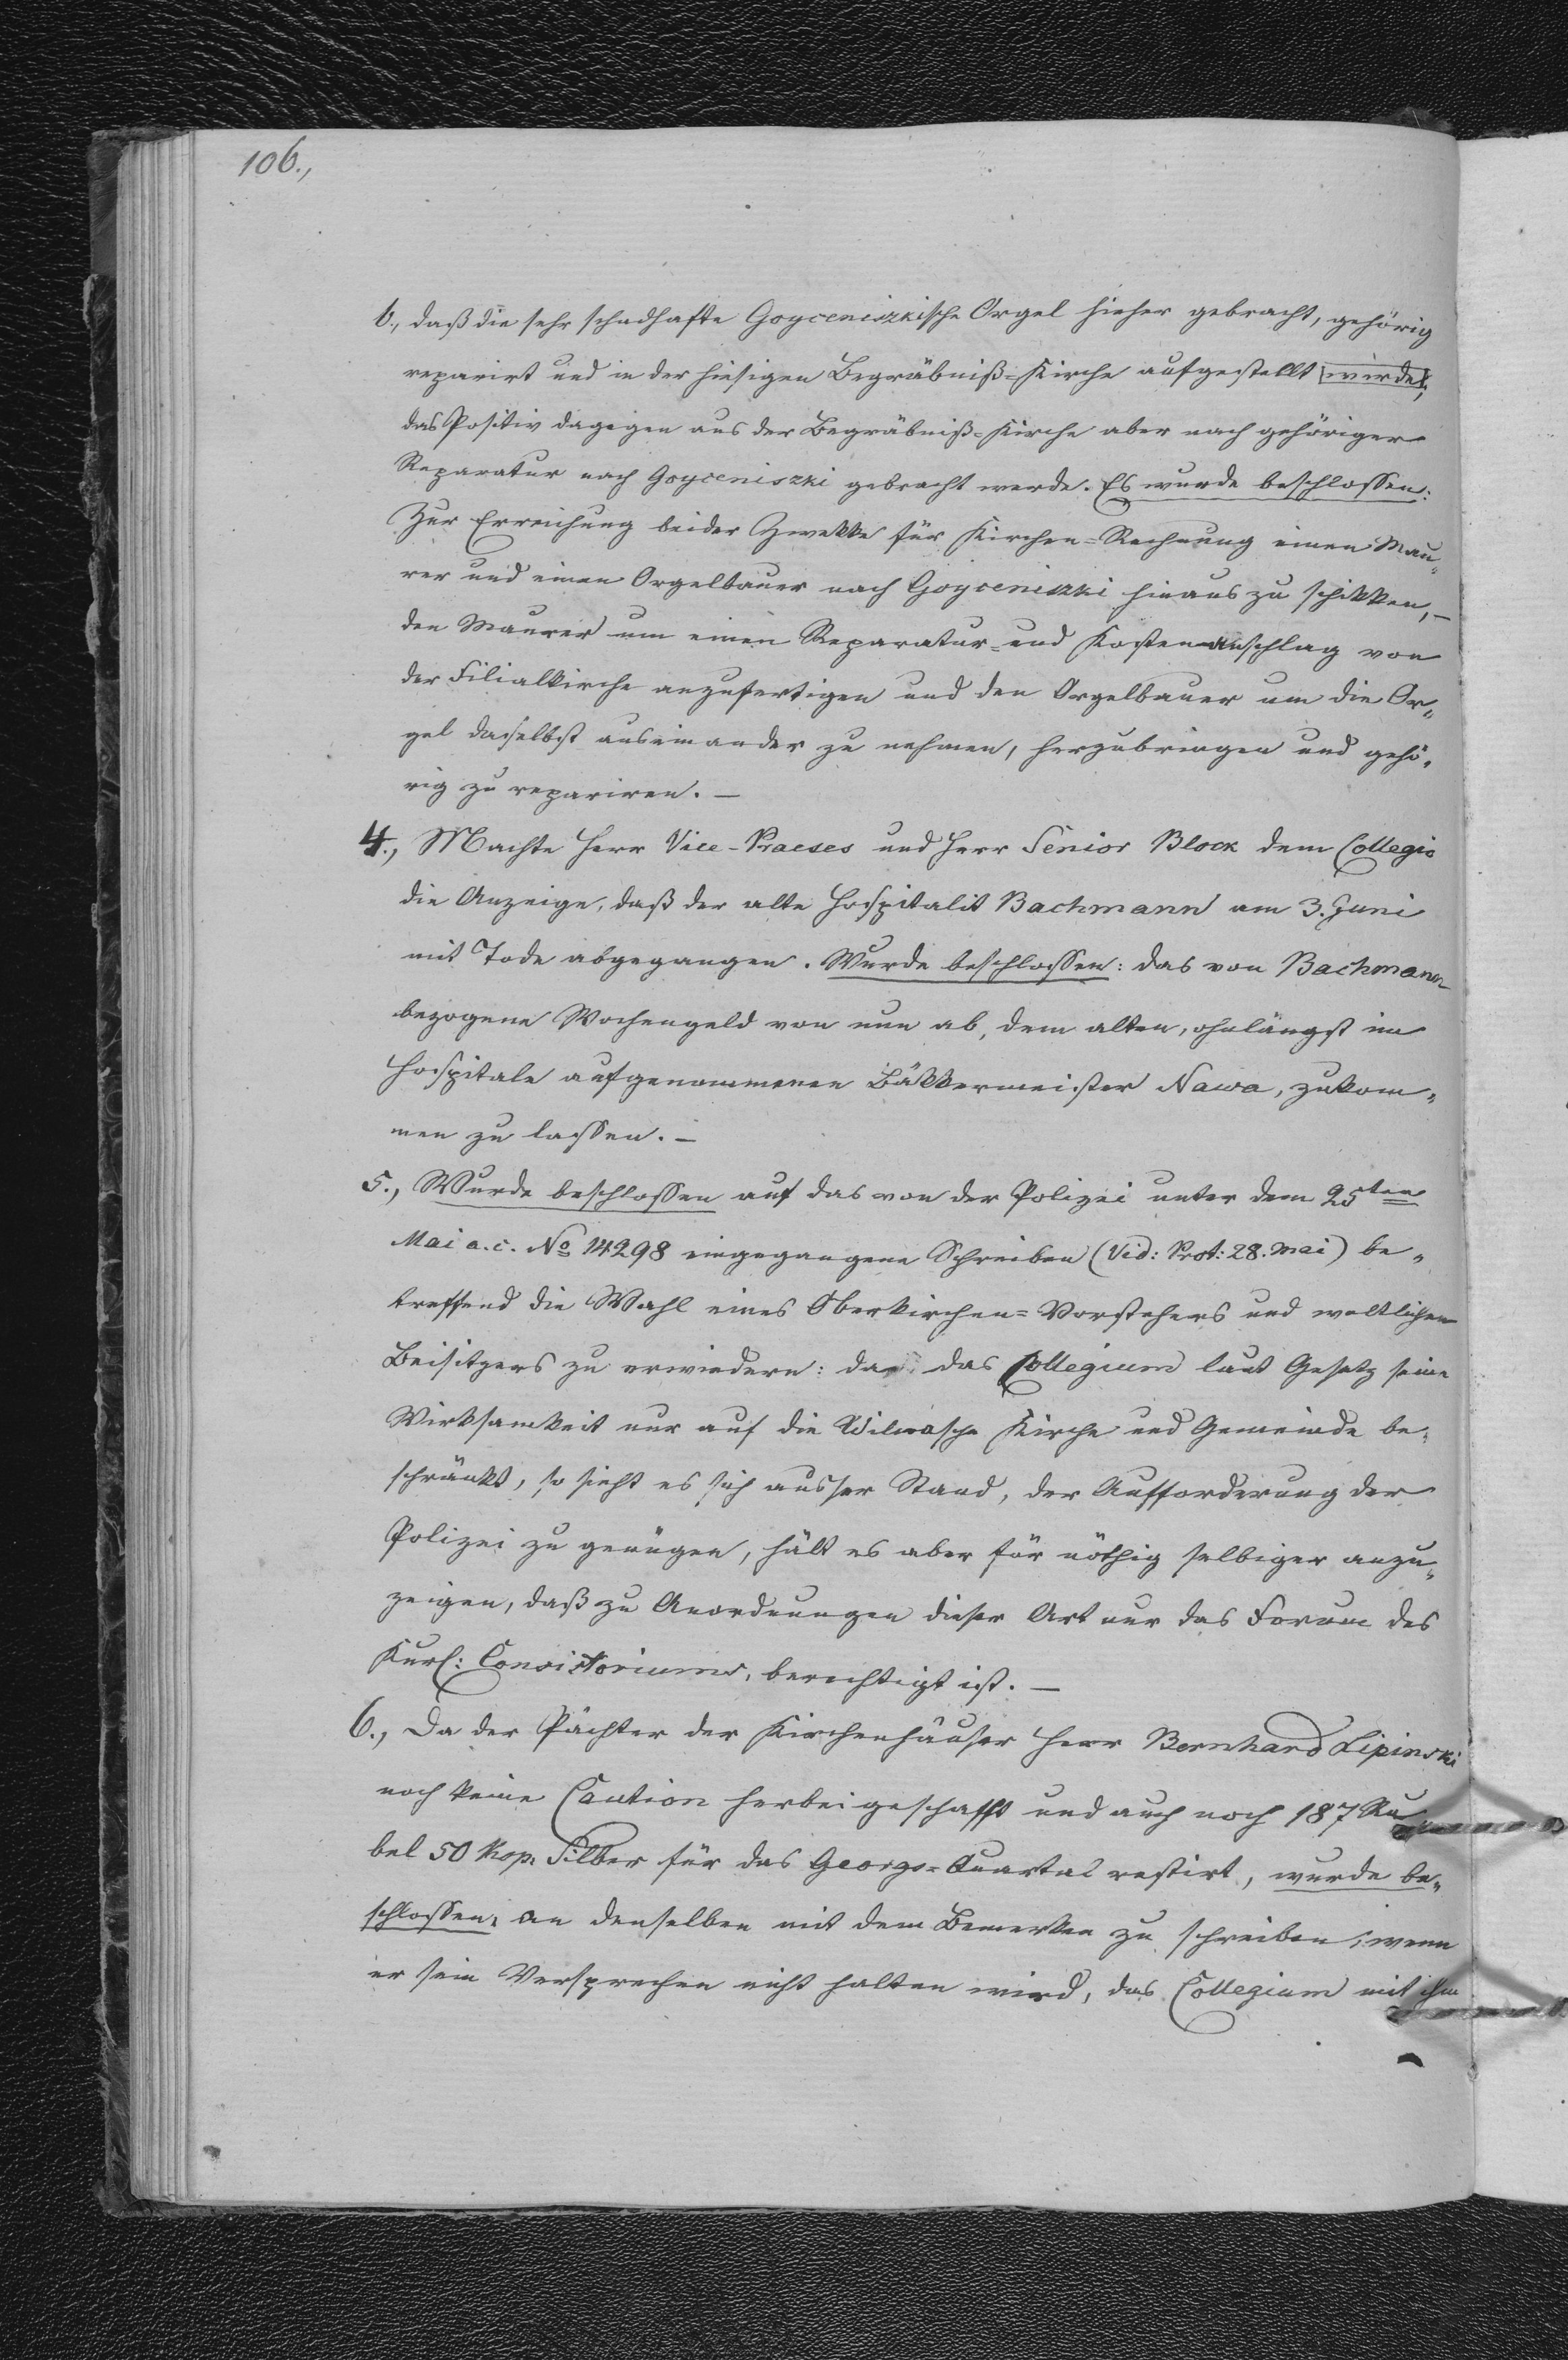 106.,
b., daß die sehr schadhafte Goyceniszkische Orgel hieher gebracht, gehörig
reparirt und in der hiesigen Begräbniß-Kirche aufgestellt werde,
das Positiv dagegen aus der Begräbniß-Kirche aber nach gehöriger
Reparatur nach Goyceniszki gebracht werde. Es wurde beschlossen:
Zur Erreichung beider Zwekke für Kirchen-Rechnung einen Mau-
rer und einen Orgelbauer nach Goyceniszki hinaus zu schikken, –
den Maurer um einen Reparatur- und Kostenanschlag von
der Filialkirche anzufertigen und den Orgelbauer um die Or-
gel daselbst auseinander zu nehmen, herzubringen und gehö-
rig zu repariren. –
4., Machte Herr Vice-Praeses und Herr Senior Block dem Collegio
die Anzeige, daß der alte Hospitalit Bachmann am 3. Juni
mit Tode abgegangen. Wurde beschlossen: das von Bachmann
bezogene Wochengeld von nun ab, dem alten, ohnlängst im
Hospitale aufgenommenen Bäkkermeister Nawa, zukom-
men zu lassen. –
5., Wurde beschlossen auf das von der Polizei unter dem 25ten
Mai a. c. No 14298 eingegangene Schreiben (Vid: Prot: 28. Mai) be-
treffend die Wahl eines Oberkirchen-Vorstehers und weltlichen
Beisitzers zu erwiedern: da das Collegium laut Gesetz seine
Wirksamkeit nur auf die Wilnasche Kirche und Gemeinde be-
schränkt, so sieht es sich ausser Stand, der Aufforderung der
Polizei zu genügen, hält es aber für nöthig selbiger anzu-
zeigen, daß zu Anordnungen dieser Art nur das Forum des
Kurl: Consistoriums, berechtigt ist. –
6., Da der Pächter der Kirchenhäuser Herr Bernhard Lipinski
noch keine Caution herbeigeschafft und auch noch 187 Ru-
bel 50 Kop. Silber für das Georgs-Quartal restirt, wurde be-
schlossen: an denselben mit dem Bemerken zu schreiben, wenn
er sein Versprechen nicht halten wird, das Collegium mit ihm